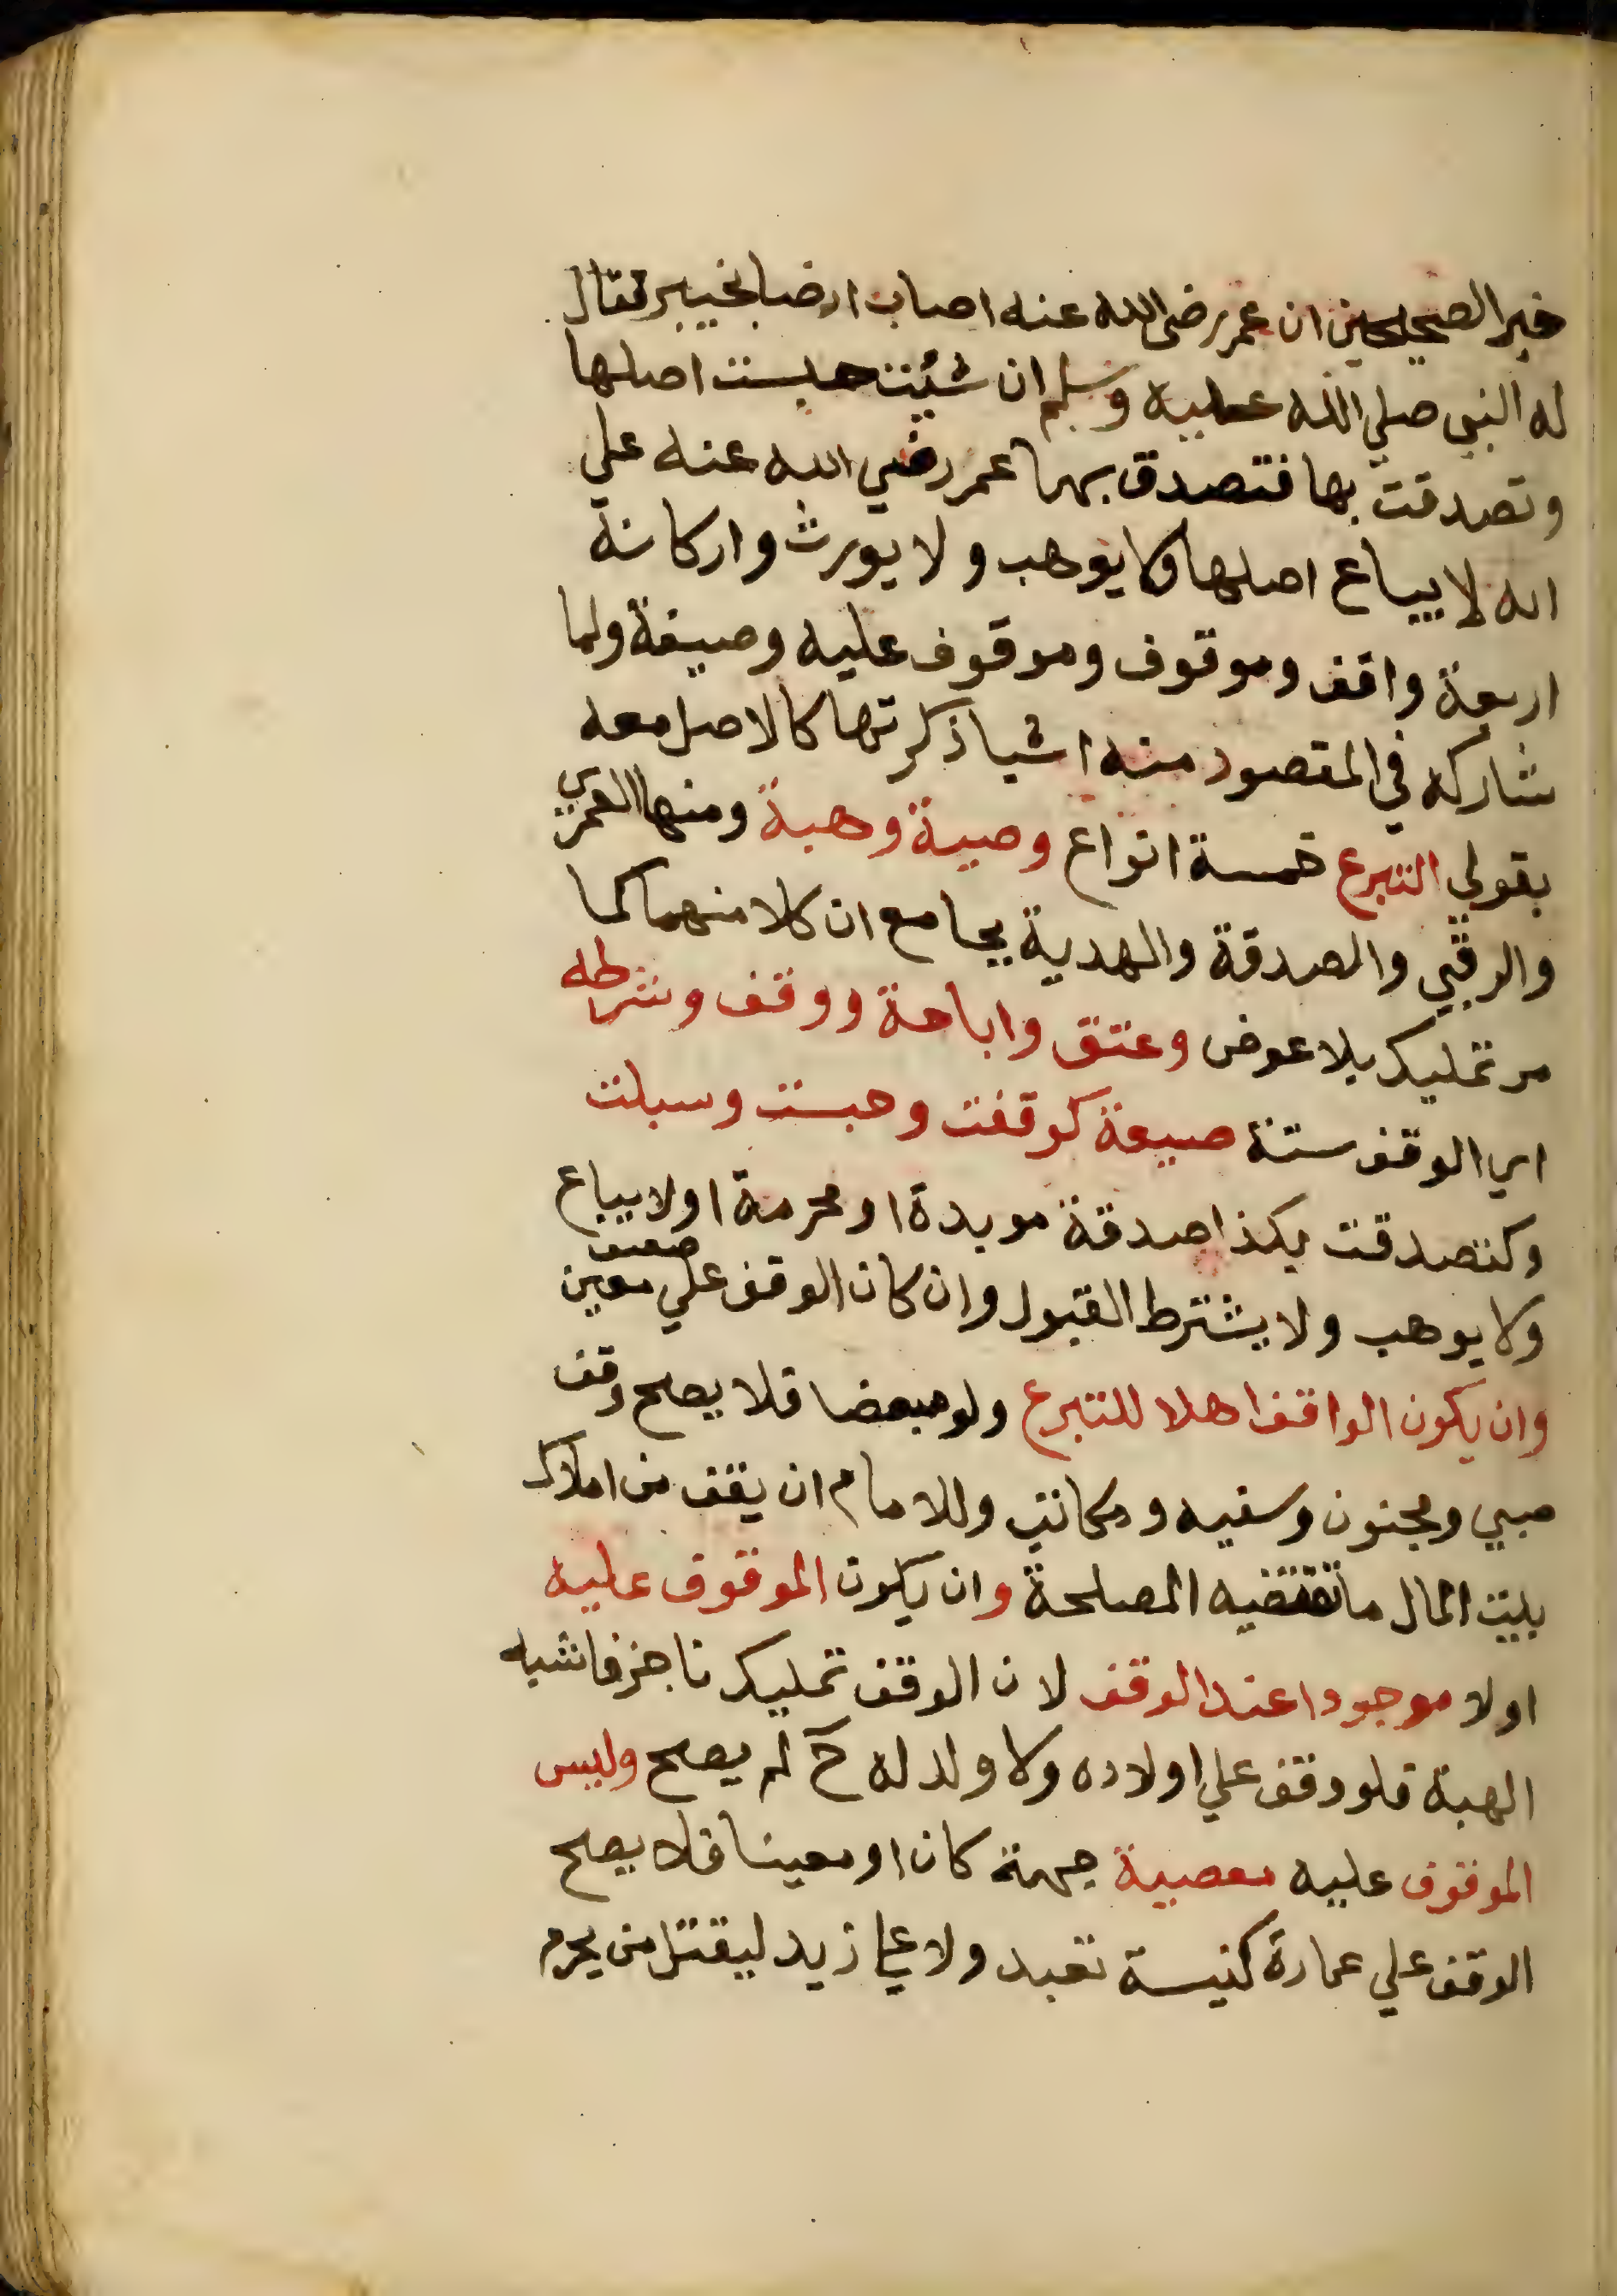 خبر الصحيحين ان عمر رضى الله عنه اصاب ارضا بخيبر فقال
له النبي صلي الله عليه وسلم ان شئت حبست اصلها
وتصدقت بها فتصدق بها عمر رضي الله عنه علي
انه لا يباع اصلها ولا يوهب ولا يورث واركانه
اربعة واقف وموقوف وموقوف عليه وصيغة ولما
شاركه في المقصود منه اشيا ذكرتها كالاصل معه
بقولي التبرع خمسة انواع وصية وهبة ومنها العمري
والرقبي والصدقة والهدية بجامع ان كلا منهما كما
مر تمليك بلا عوض وعتق واباحة ووقف وشرطه
اي الوقف ستة صيغة كوقفت وحبست وسبلت
وكتصدقت بكذا صدقة موبدة او محرمة او لا يباع
ولا يوهب ولا يشترط القبول وان كان الوقف علي معين
ضعيف
وان يكون الواقف اهلا للتبرع ولو مبعضا فلا يصح وقف
صبي ومجنون وسفيه ومكاتب وللامام ان يقف من املاك
بيت المال ما تقتضيه المصلحة وان يكون الموقوف عليه
اولا موجودا عند الوقف لان الوقف تمليك ناجز فاشبه
الهبة فلو وقف علي اولاده ولا ولد له ح لم يصح وليس
الموقوف عليه معصية جهة كان او معينا فلا يصح
الوقف علي عمارة كنيسة تعبد ولا علي زيد ليقتل من يحرم